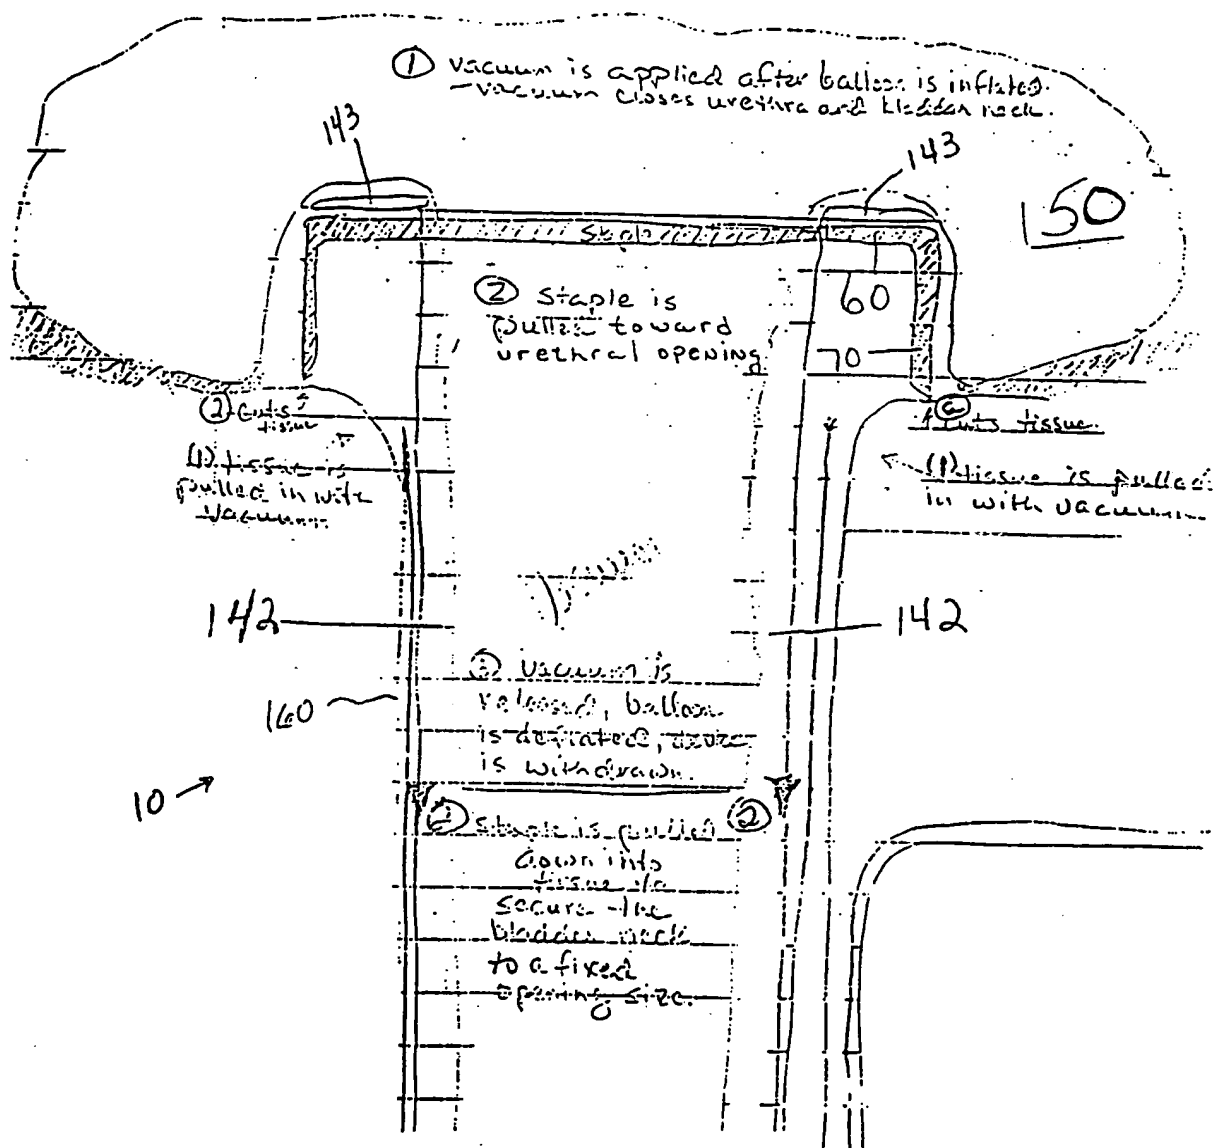 ① Vacuum is applied after balloon is inflated.
- vacuum closes urethra and bladder neck.
143
143
150
Staple
② Staple is
pulled toward
urethral opening
60
70
② Cuts
tissue
(1) tissue is
pulled in with
vacuum
② 
cuts tissue.
(1) tissue is pulled
in with vacuum
142
142
160
10
③ Vacuum is
released, balloon
is deflated, device
is withdrawn.
② Staple is pulled ②
down into
tissue to
secure the
bladder neck
to a fixed
opening size.